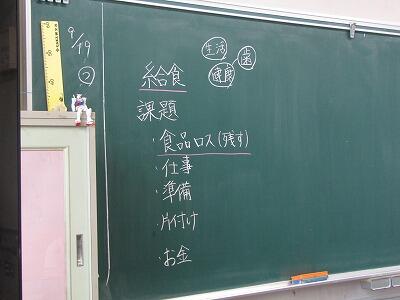 9/19
②
生活
健康
歯
給食
課題
・食品ロス(残す)
・仕事
・準備
・片付け
・お金